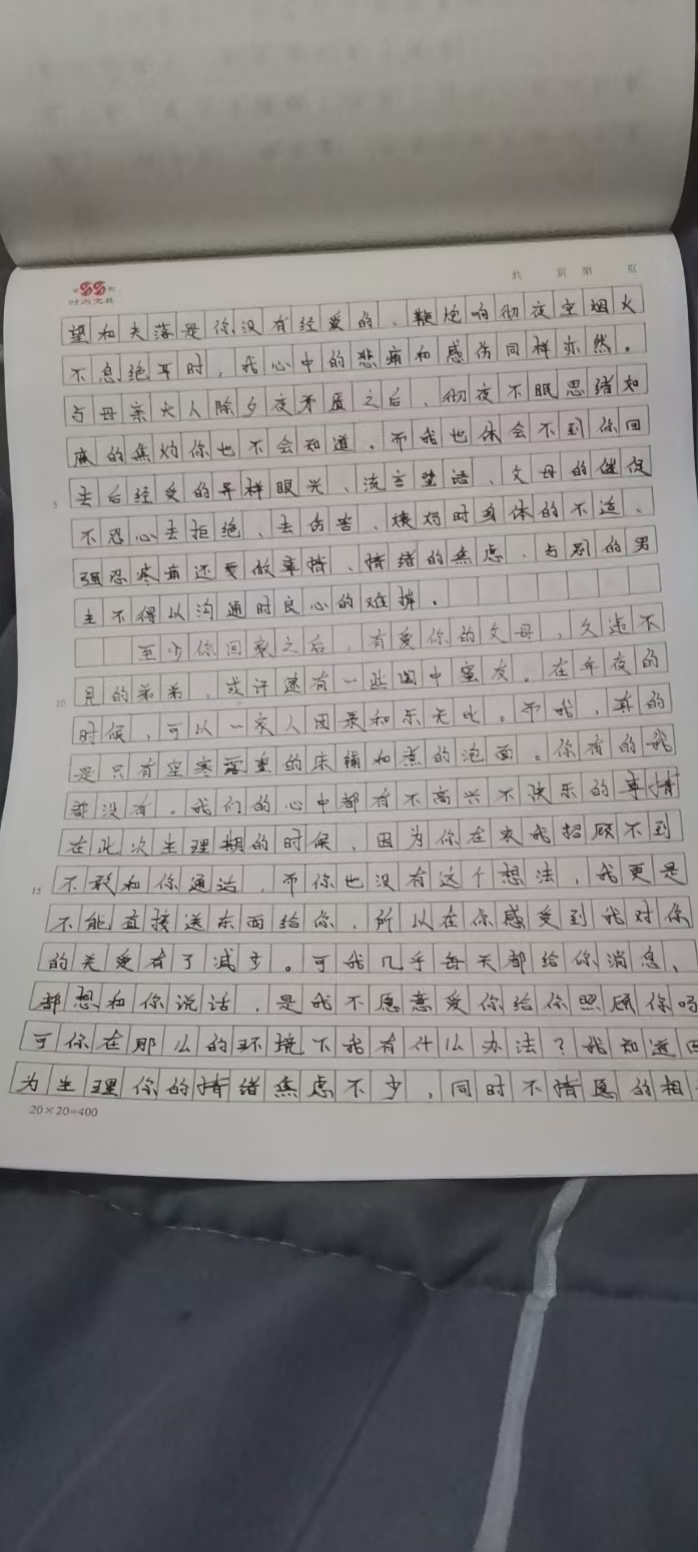 共 页 第 页
时尚文具
望和失落是你没有经受的、鞭炮响彻夜空烟火
不息绝耳时，我心中的悲痛和感伤同样亦然。
与母亲大人除夕夜矛盾之后、彻夜不眠思绪如
麻的焦灼你也不会知道．而我也体会不到你回
去后经受的异样眼光、流言蜚语、父母的催促
不忍心去拒绝、去伤害、姨妈时身体的不适、
强忍疼痛还要做事情、情绪的焦虑．与别的男
生不得以沟通时良心的难捱．
至少你回家之后，有爱你的父母，久违不
见的弟弟，或许还有一些闺中蜜友。在年夜的
时候，可以一家人团聚和乐无比。而我，真的
是只有空寒落寞的床铺和煮的泡面。你有的我
都没有。我们的心中都有不高兴不快乐的事情
在此次生理期的时候，因为你在家我招顾不到
不敢和你通话，而你也没有这个想法，我更是
不能直接送东西给你．所以在你感受到我对你
的关爱有了减少。可我几乎每天都给你消息、
都想和你说话，是我不愿意爱你给你照顾你吗
可你在那么的环境下我有什么办法？我知道因
为生理你的情绪焦虑不少，同时不情愿的相
20×20=400